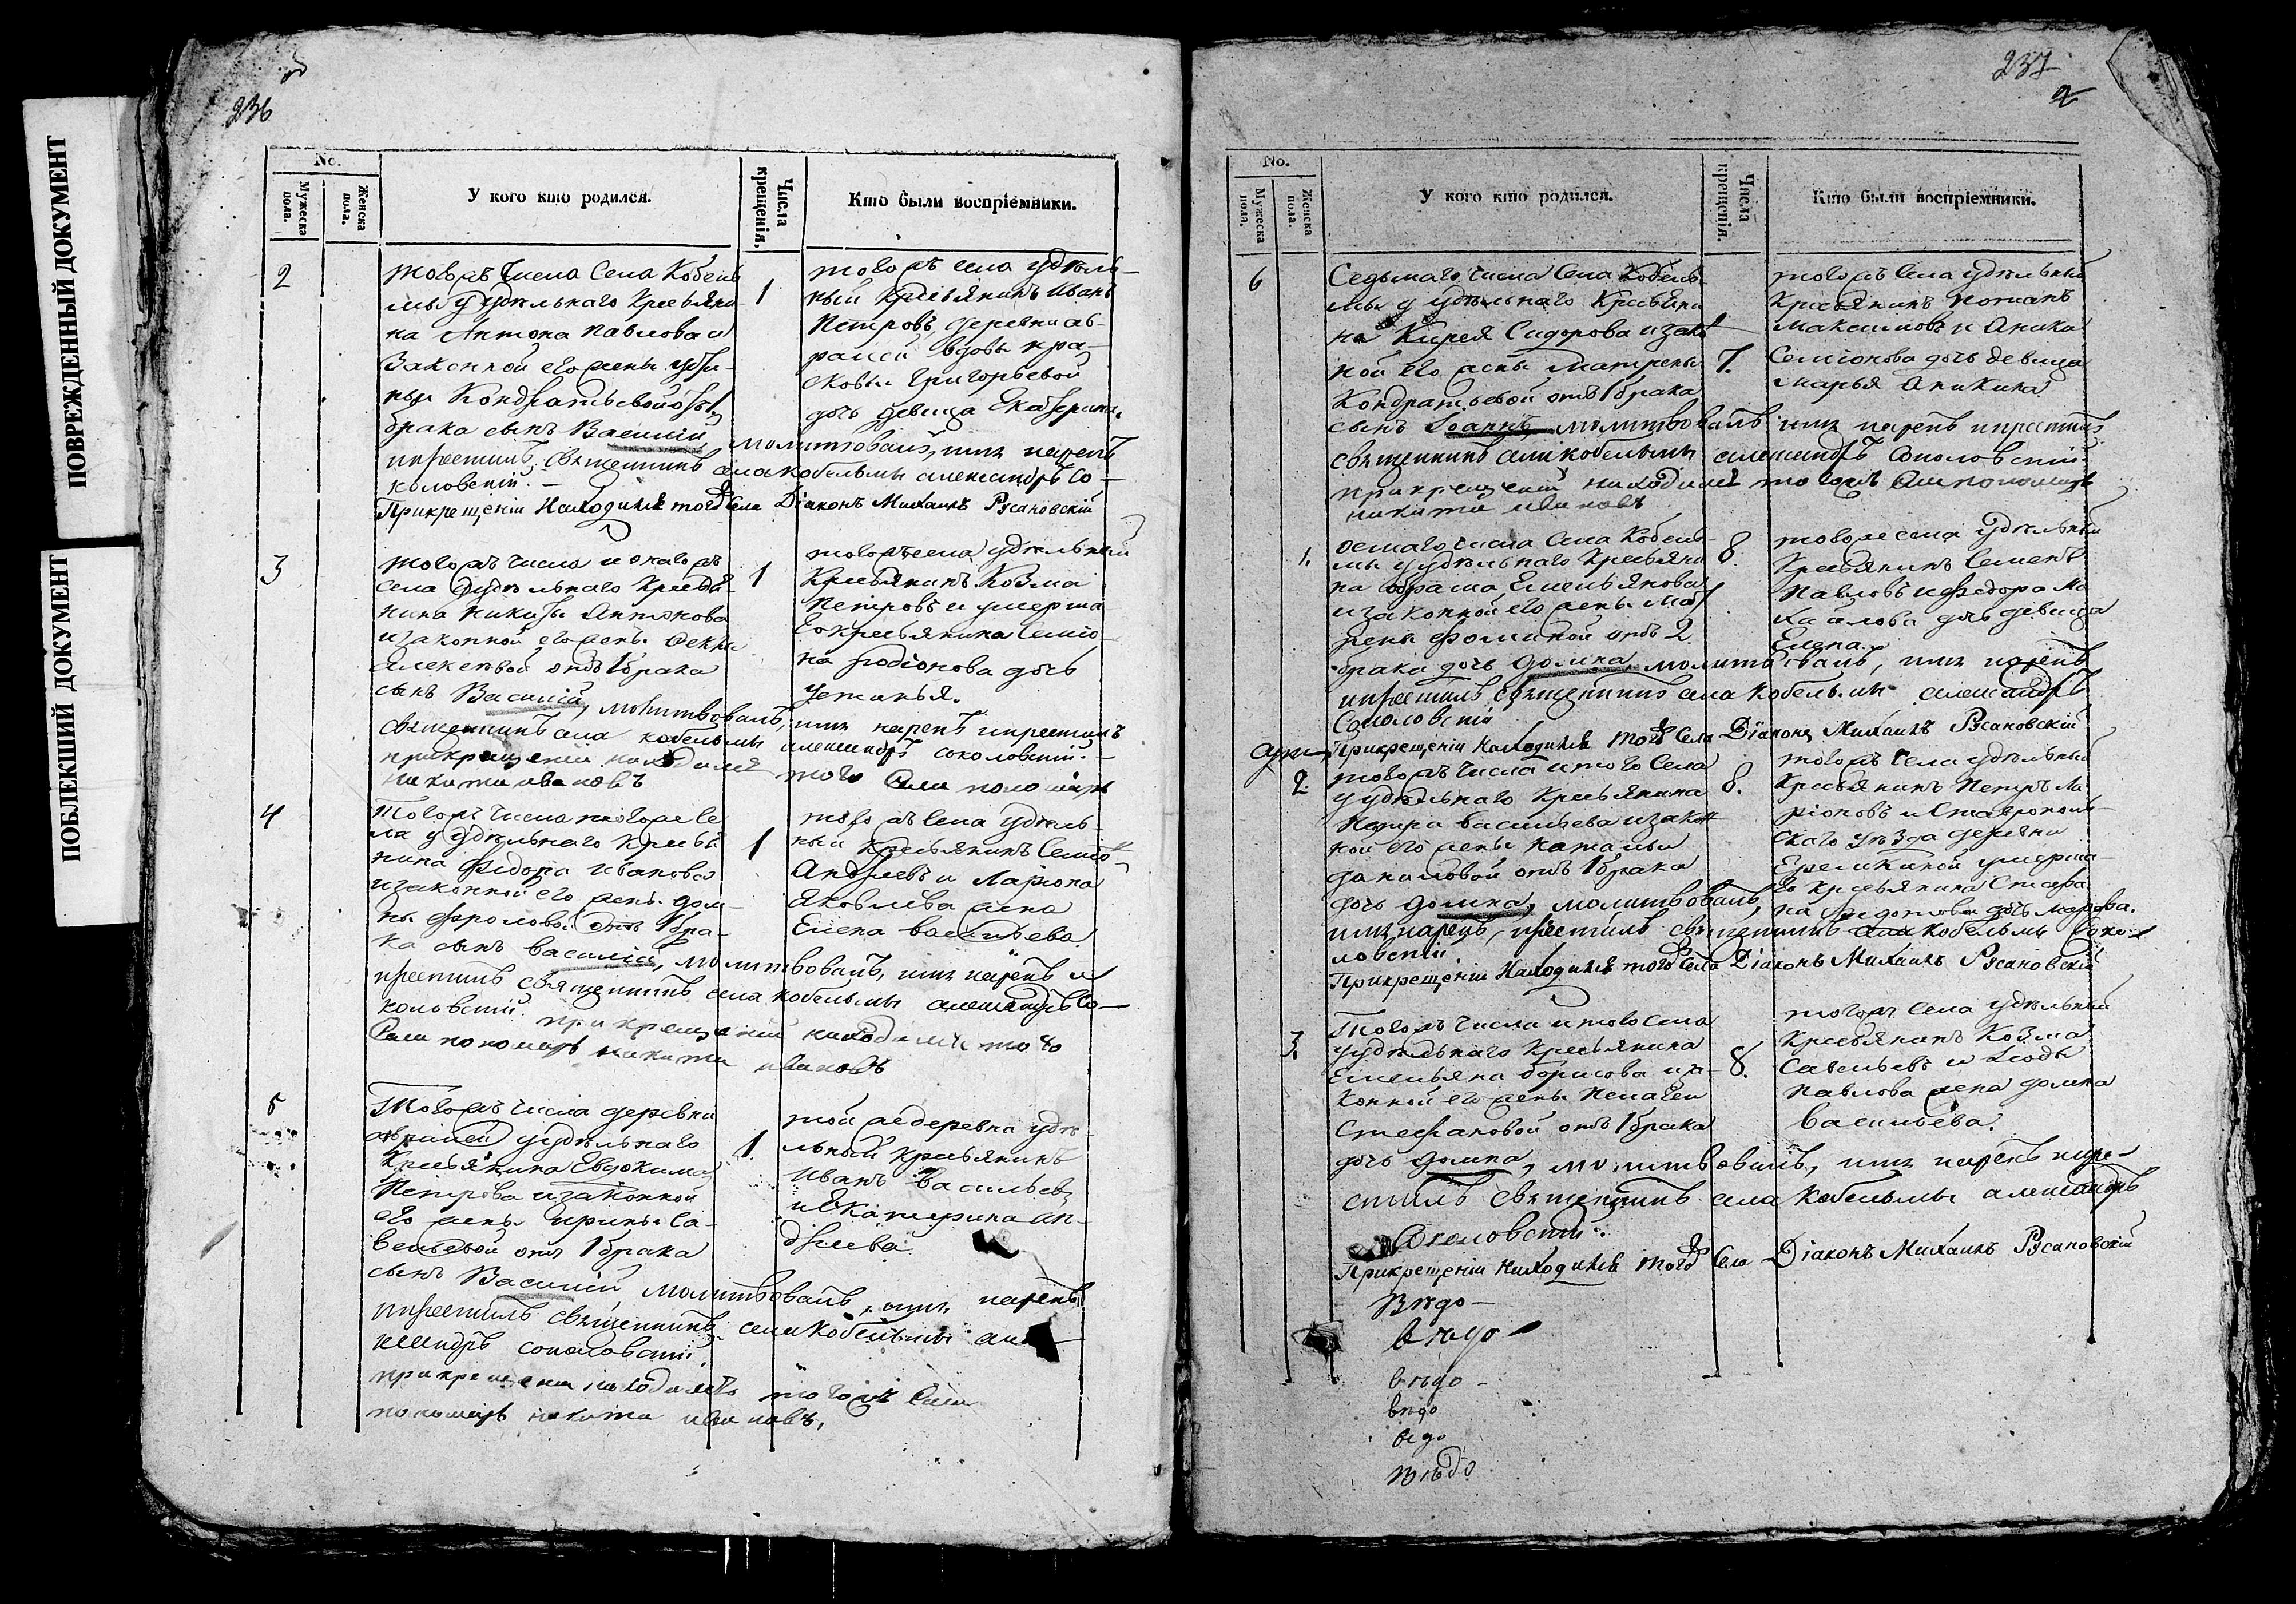 ПОВРЕЖДЕННЫЙ ДОКУМЕНТ
ПОБЛЕКШИЙ ДОКУМЕНТ
236
No.
Мужеска пола.
Женска пола.
У кого кто родился.
Числа крещенія.
Кто были воспріемники.
2
тогожъ числа Села Кобель
мы у удѣльнаго Крестьяни
на Антона Павлова и
Законной его жены
Кондратьевой отъ 1
брака сынъ Василій молитвовалъ, имя нарекъ
и крестилъ священникъ села кобельмы александръ Со-
коловскій.
При крещеніи Находился тогожъ Села Діаконъ Михаилъ Русановскій
1
тогожъ села удѣль-
ный Крестьянинъ Иванъ
Петровъ, деревни ав-
ралей вдовы пра-
сковьи Григорьевой
дочь девица Екатерина.
3
тогожъ числа и онагожъ
села у удѣльнаго Крестья-
нина Никиты Антонова
и законной его жены Феклы
Алексѣвой отъ 1 брака
сынъ Василій, молитвовалъ, имя нарекъ и крестилъ
священникъ села кобельмы александръ соколовскій.
при крещеніи находился того Села пономарь
никита ивановъ
1
тогожъ села удѣльный
Крестьянинъ Козма
Петровъ и умерша
го крестьянина Семіо
на Родіонова дочь
Устинья.
4
Тогожъ числа тогоже Се
ла у удѣльнаго Крестья
нина Федора Иванова
и законной его жены дом-
ны Фроловой отъ 1 бра-
ка сынъ Василій, молитвовалъ, имя нарекъ и
крестилъ священникъ села кобельмы александръ Со-
коловскій. при крещеніи находился того
Села пономарь никита ивановъ
1
тогожъ Села удѣль-
ный Крестьянинъ Семіонъ
Андреевъ и Ларіона
Яковлева жена
Елена васильева.
5
Тогожъ числа деревни
авралей у удѣльнаго
Крестьянина Евдокима
Петрова и законной
его жены Ирины Са-
вельевой отъ 1 брака
сынъ Василій, молитвовалъ, имя нарекъ
и крестилъ священникъ села Кобельмы але
ксандръ соколовскій.
при крещени находился тогожъ Села
пономарь никита ивановъ,
1.
той же деревни удѣ-
льный крестьянинъ
Иванъ Васильевъ
и Екатерина Ан-
дреева.
237
2
No.
Мужеска пола.
Женска пола.
У кого кто родился.
Числа крещенія.
Кто были воспріемники.
6
Седьмаго числа Села Кобель-
мы у удѣльнаго Крестьяни
на Кирея Сидорова и зако
ной его жены Матрены
Кондратьевой отъ 1 брака
сынъ Іоаннъ молитвовалъ имя нарекъ и крестилъ
священникъ села кобельмы александръ Соколовскій.
при крещеніи находился тогожъ Села пономарь
никита ивановъ
7.
тогожъ Села удѣльный
Крестьянинъ Романъ
Максимовъ и Аника
Семіонова дочь девица
Марья Аникина
1.
осмаго числа Села Кобель-
мы у удѣльнаго Крестьяни
на Абрама Емельянова
и законной его жены Мат
рены Фоминой отъ 2
брака дочь Домна, молитвовалъ, имя нарекъ
и крестилъ священникъ села Кобельмы александръ
Соколовскій
При крещеніи Находился тогожъ Села Діаконъ Михаилъ Русановскій
8
тогоже села удѣльный
Крестьянинъ Семенъ
Павловъ и Федора Ми
хайлова дочь девица
Елена.
2.
тогожъ числа и того Села
у удѣльнаго Крестьянина
Петра Васильева и закон
ной его жены Натальи
даниловой отъ 1 брака
дочь Домна, молитвовалъ,
имя нарекъ, крестилъ священникъ села кобельмы Соко
ловскій.
При крещеніи Находился тогожъ Села Діаконъ Михаилъ Русановскій
8.
тогожъ Села удѣльный
Крестьянинъ Петръ Ла
ріоновъ и Ставрополь-
скаго уѣзда деревни
Еремкиной умерша-
го крестьянина Стефа
на дочь Марфа.
3.
Тогожъ числа и того села
у удѣльнаго Крестьянина
Емельяна Борисова и за
конной его жены Пелагеи
Стефановой отъ 1 брака
дочь Домна, молитвовалъ, имя нарекъ и кре-
стилъ священникъ села Кобельмы александръ
Соколовскій.
При крещеніи Находился тогожъ Села Діаконъ Михаилъ Русановскій
8.
тогожъ Села удѣльный
Крестьянинъ Козма
Савельевъ и
Павлова жена домна
Васильева.